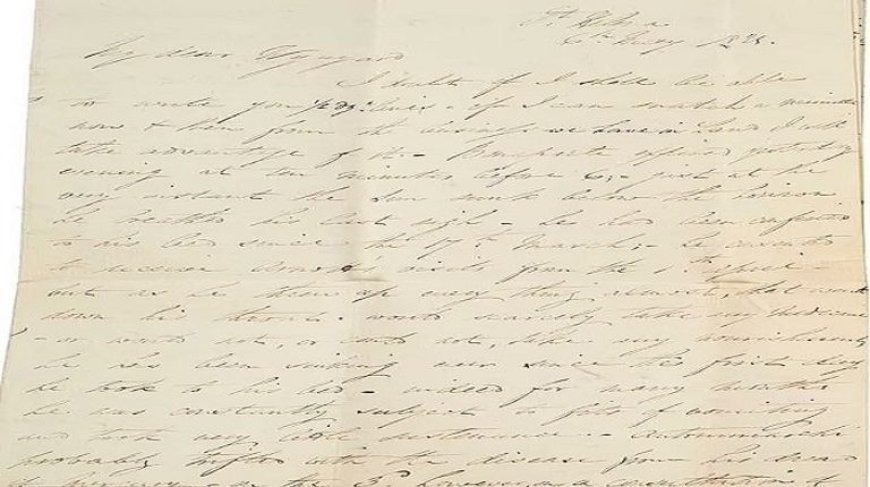 St. Helena
6th May 1821.
My dear Wynyard
I doubt if I shall be able
to write you lines - if I can snatch a minute
now & then from the business we have in hand I will
take advantage of it - Bonaparte expired yesterday
evening at ten minutes before 6, - just at the
very instant the sun sunk below the horizon
he breathed his last sigh - he had been confined
to his bed since the 17th March; - he consented
to receive Arnott's visits from the 1st April -
but as he threw up every thing almost, that went
down his throat - would scarcely take any medicine
- or would not, or could not, take any nourishment
he has been sinking ever since the first day
he took to his bed - indeed for many months
he was constantly subject to fits of vomiting
and took very little sustenance - Antommarchi
probably trifled with the disease from his
on the 3d however, on a consultation of